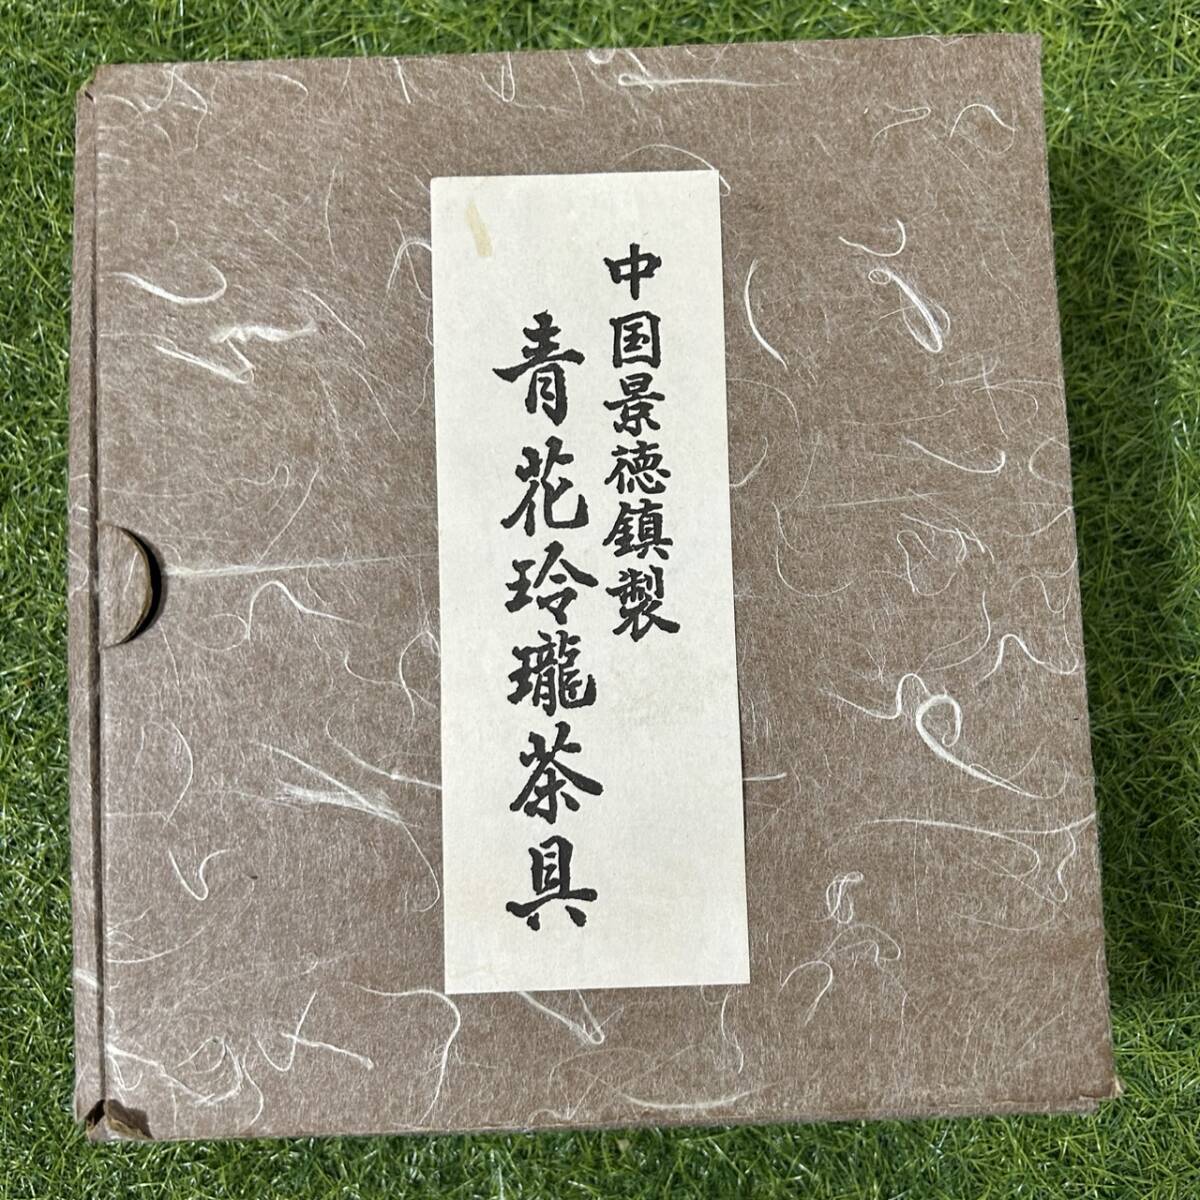 中国景徳鎮製
青花玲瓏茶具